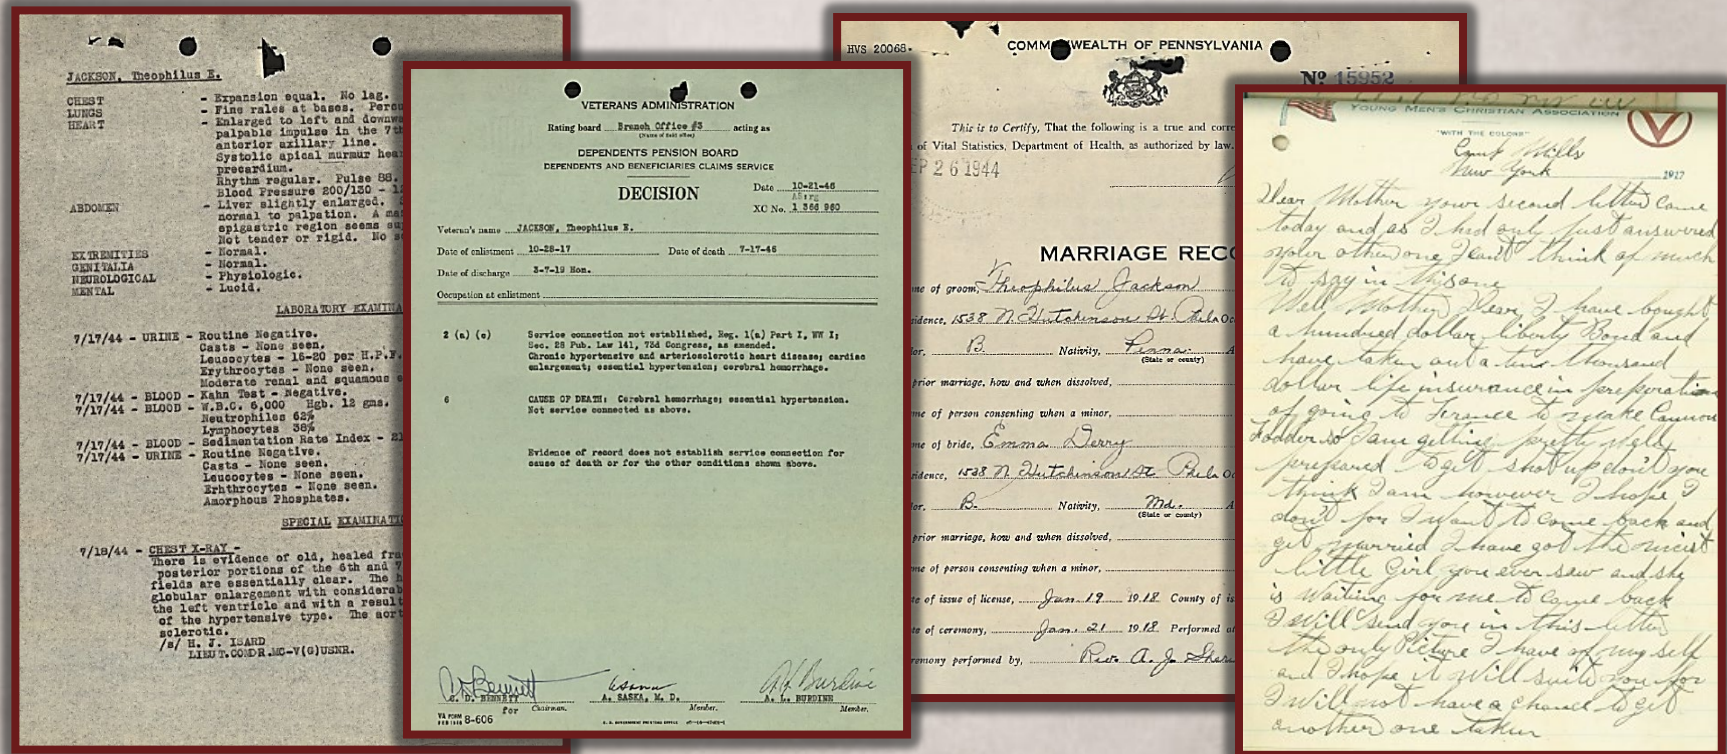 JACKSON, Theophilus E.
CHEST - Expansion equal. No lag.
LUNGS - Fine rales at bases.
HEART - Enlarged to left and
palpable impulse in the 7th
anterior axillary line.
Systolic apical murmur
precardium.
Rhythm regular. Pulse 88.
Blood Pressure 200/130 -
ABDOMEN - Liver slightly enlarged.
normal to palpation. A
epigastric region seems
Not tender or rigid. No
EXTREMITIES - Normal.
GENITALIA - Normal.
NEUROLOGICAL - Physiologic.
MENTAL - Lucid.
LABORATORY EXAMINA
7/17/44 - URINE - Routine Negative.
Casts - None seen.
Leucocytes - 16-20 per H.P.F.
Erythrocytes - None seen.
Moderate renal and squamous
7/17/44 - BLOOD - Kahn Test - Negative.
7/17/44 - BLOOD - W.B.C. 6,000 Hgb. 12 gms.
Neutrophiles 62%
Lymphocytes 38%
7/17/44 - BLOOD - Sedimentation Rate Index -
7/17/44 - URINE - Routine Negative.
Casts - None seen.
Leucocytes - None seen.
Erhthrocytes - None seen.
Amorphous Phosphates.
SPECIAL EXAMINATIO
7/18/44 - CHEST X-RAY -
There is evidence of old, healed
posterior portions of the 6th and 7
fields are essentially clear. The
globular enlargement with
the left ventricle and with a result
of the hypertensive type. The
sclerotic.
/s/ H. J. ISARD
LIEUT.COMDR.MC-V(G)USNR.
VETERANS ADMINISTRATION
Rating board Branch Office #3 acting as
(Name of field office)
DEPENDENTS PENSION BOARD
DEPENDENTS AND BENEFICIARIES CLAIMS SERVICE
DECISION
Date 10-21-46
XC No. 1 366 960
Veteran's name JACKSON, Theophilus E.
Date of enlistment 10-28-17 Date of death 7-17-46
Date of discharge 3-7-19 Hon.
Occupation at enlistment
2 (a) (c) Service connection not established, Reg. 1(a) Part I, WW I;
Sec. 28 Pub. Law 141, 73d Congress, as amended.
Chronic hypertensive and arteriosclerotic heart disease; cardiac
enlargement; essential hypertension; cerebral hemorrhage.
6 CAUSE OF DEATH: Cerebral hemorrhage; essential hypertension.
Not service connected as above.
Evidence of record does not establish service connection for
cause of death or for the other conditions shown above.
C. D. BENNETT A. SASKA, M. D. A. L. BURDINE
for Chairman. Member. Member.
VA FORM 8-606
HVS 20068-
COMMONWEALTH OF PENNSYLVANIA
No 15952
This is to Certify, That the following is a true and corre
of Vital Statistics, Department of Health, as authorized by law.
EP 26 1944
MARRIAGE RECO
me of groom, Theophilus Jackson
idence, 1538 N. Hutchinson St. Phila Oc
or, B. Nativity, Penna. A
(State or county)
prior marriage, how and when dissolved,
me of person consenting when a minor,
me of bride, Emma Derry
idence, 1538 N. Hutchinson St. Phila Oc
or, B. Nativity, Md. A
(State or county)
prior marriage, how and when dissolved,
me of person consenting when a minor,
te of issue of license, Jan. 19 1918 County of is
te of ceremony, Jan. 21 1918 Performed at
remony performed by, Rev. A. J.
YOUNG MEN'S CHRISTIAN ASSOCIATION
"WITH THE COLORS"
Camp Mills
New York 1917
Dear Mother your second letter came
today and as I had only just answered
your other one I cant think of much
to say in this one
Well Mother Dear, I have bought
a hundred dollar liberty Bond and
have taken out a ten thousand
dollar life insurance in preperation
of going to France to make Cannon
fodder so I am getting pretty well
prepared to get shot up dont you
think I am however I hope I
dont for I want to come back and
get married I have got the nicest
little Girl you ever saw and she
is waiting for me to come back
I will send you in this letter
the only Picture I have of my self
and I hope it will suit you for
I will not have a chance to get
another one taken